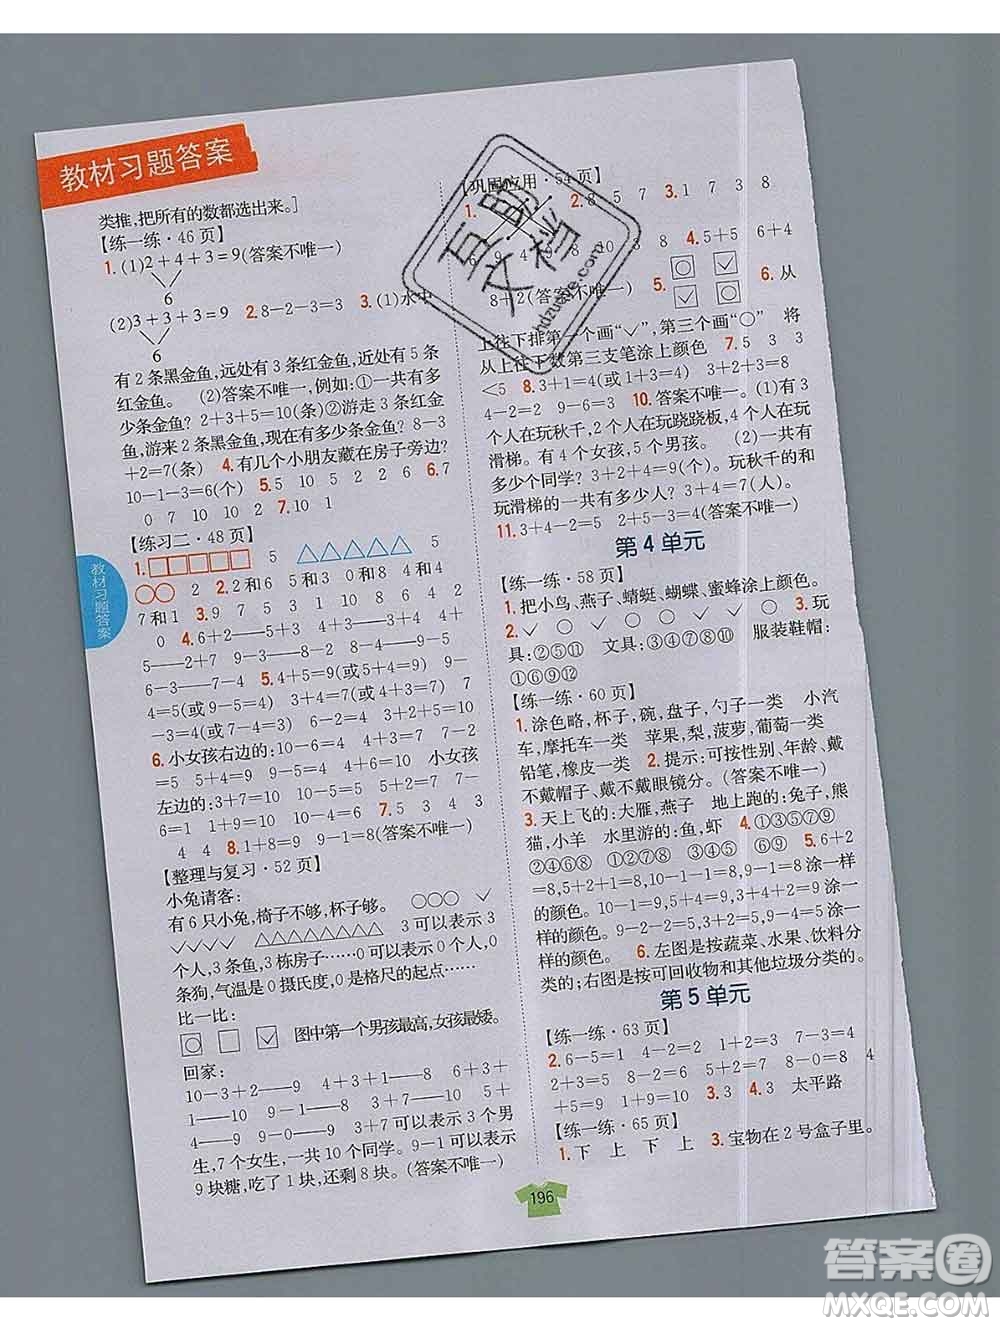 教材习题答案
类推,把所有的数都选出来。]
【练一练·46页】
1.(1)2+4+3=9(答案不唯一)
6
(2)3+3+3=9 2.8-2=3=3 3.(1)水中
6
有2条黑金鱼,远处有3条红金鱼,近处有5条
红金鱼。 (2)答案不唯一,例如:①一共有多
少条金鱼? 2+3+5=10(条)②游走3条红金
鱼,游来2条黑金鱼,现在有多少条金鱼? 8-3
+2=7(条) 4.有几个小朋友藏在房子旁边?
10-1-3=6(个) 5.5 10 5 2 2 6 6.7
0 7 10 10 2 7.10 1
【练习二·48页】
1. 5 5
2 2.2和6 5和3 0和8 1和
7和1 3.9 7 6 8 6 10 3 2 3
0 4.6+2——10-2 3+4——2+5
5——2+7 9-3——6-0 9-6——3+
6——3-0 5.4+5=9(或5+4=9) 9-
4=5(或9-5=4) 3+4=7(或4+3=7) 7
-3=4(或7-4=3) 10-6=4(或10-4=6)
6.小女孩右边的:10-1=9 4+3=7 7-2
=5 5+4=9 1+6=7 4+4=8 小女孩
左边的:3+7=10 10-5=5 9-6=3 7-
6=1 1+9=10 10-8=2 7.5 2 3
4 4 8.1+9=10 9-1=8(答案不唯一)
【整理与复习·52页】
小兔请客:
有6只小兔,椅子不够,杯子够。
3可以表示3
个人,3条鱼,3栋房子……0可以表示0
条狗,气温是0摄氏度,0是格尺的起点……
比一比:
图中第一个男孩最高,女孩最矮。
回家:
10-3+2——9 4+3+1——8 6-4-
1——10 9-1——8 3+7——10
4+5——9 9+1可以表示3个男
生,7个女生,一共10个同学。9-1可以表示有
9块糖,吃了1块,还剩8块。(答案不唯一)
【巩固应用·54页】
1. 2.8 5 7 3.1 7 3 8
6 9 4 9 8 10 3 8 4.5+5 6+4
8+2(答案不唯一) 5. 6.从
上往下排第一个画“√”,第三个画“○” 将
从上往下数第三支笔涂上颜色 7.5 3 3
<5 8.3+1=4(或1+3=4) 9.
4-2=2 9-6=3 10.答案不唯一。(1)3
个人在玩秋千,2个人在玩跷跷板,4个人在玩
滑梯。有4个女孩,5个男孩。 (2)一共有
多少个同学? 3+2+4=9(个)。玩秋千的和
玩滑梯的一共有多少人? 3+4=7(人)。
11.3+4-2=5 2+5-6=1(答案不唯一)
第4单元
【练一练·58页】
1.把小鸟、燕子、蜻蜓、蝴蝶、蜜蜂涂上颜色。
2.√ ○ ○ √ ○ √ ○ 3.玩
具:②⑤⑪ 文具:③④⑦⑧⑩ 服装鞋帽:
①⑥⑨⑫
【练一练·60页】
1.涂色略,杯子,碗,盘子,勺子一类 小汽
车,摩托车一类 苹果,梨,菠萝,葡萄一类
铅笔,橡皮一类 2.提示:可按性别、年龄、戴
不戴帽子、戴不戴眼镜分。(答案不唯一)
3.天上飞的:大雁,燕子 地上跑的:兔子,熊
猫,小羊 水里游的:鱼,虾 4.①③⑤⑦⑨
②④⑥⑧ ①②⑤⑦ ③④⑧ ⑥⑨ 5.4+6
=10,1+9=10,3+7=10,8+2=10涂一样
的颜色。10-1=9,5+4=9,1+8=9涂一样
的颜色。9-2-2=5,2+1+2=5,9-4=5涂一
样的颜色。 6.左图是按蔬菜、水果、饮料分
类的;右图是按可回收物和其他垃圾分类的。
第5单元
【练一练·63页】
2.6-5=1 0+2=2 1+2=3 7-3=4
2+3=5 9-3=6 5+2=7 8-0=8 4
+5=9 1+9=10 3.3 4.3 太平路
【练一练·65页】
1.下 上 下 上 3.宝物在2号盒子里。
教材习题答案
196
互助文档
hdzuoye.com
答案圈
MXQE.COM